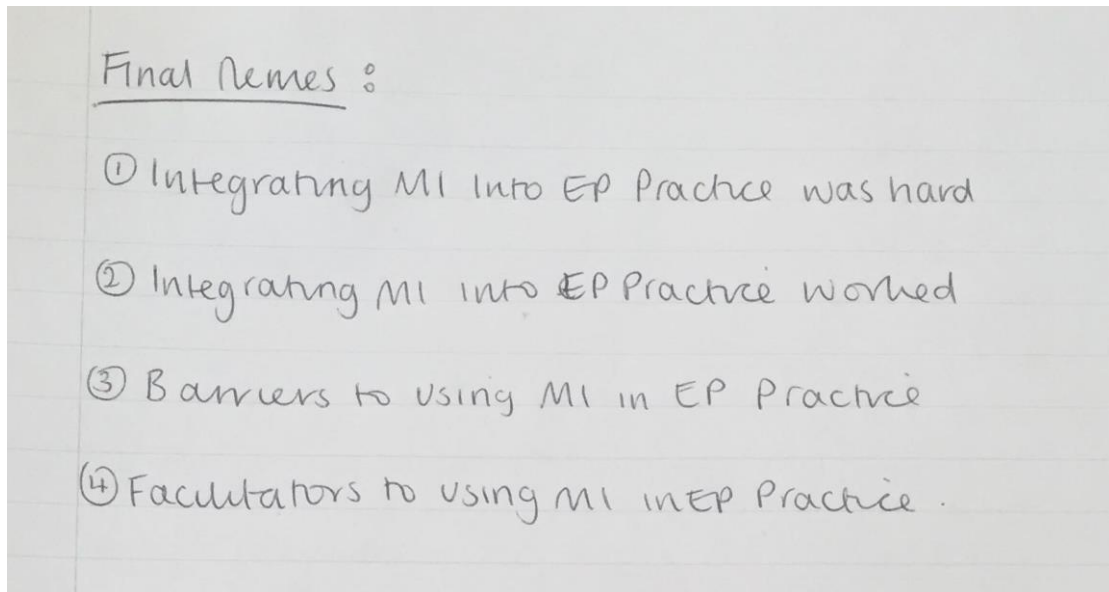 Final Themes :
① Integrating MI Into EP Practice was hard
② Integrating MI into EP Practice worked
③ Barriers to using MI in EP Practice
④ Facilitators to using MI in EP Practice.